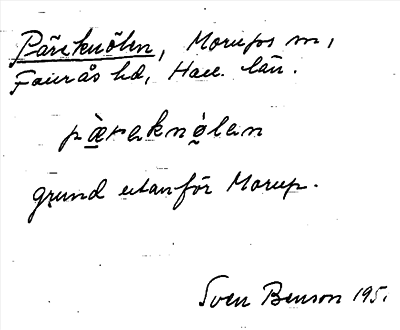 Päreknölen, Morups sn,
Faurås hd, Hall. län.
pæ̀raknø̀lan
grund utanför Morup.
Sven Benson 195.